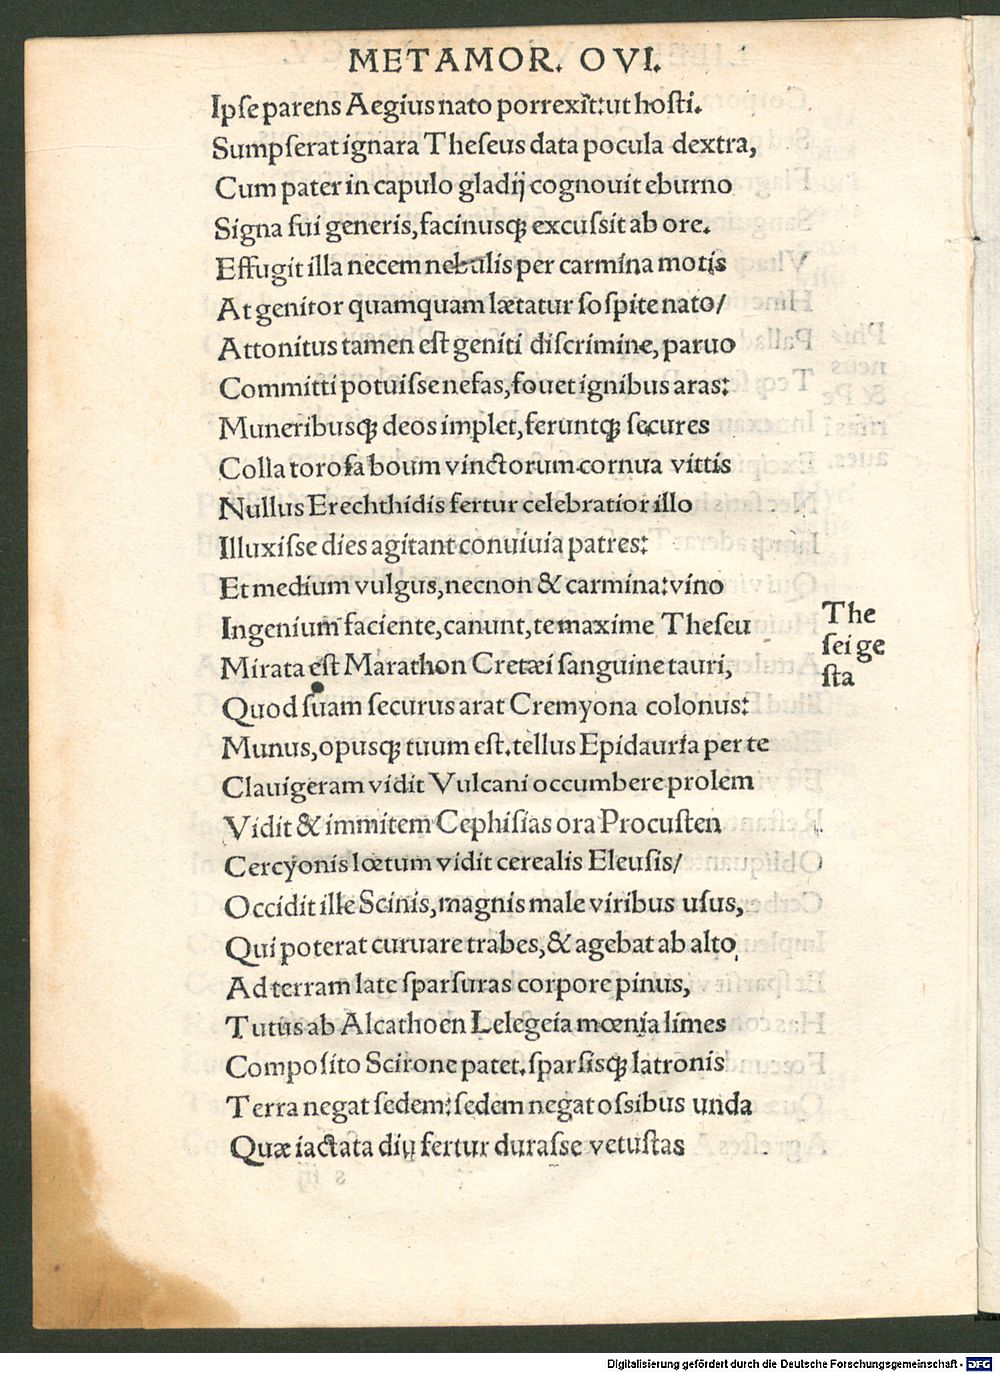 METAMOR. OVI.
Ipſe parens Aegius nato porrexit: ut hoſti.
Sumpſerat ignara Theſeus data pocula dextra,
Cum pater in capulo gladij cognouit eburno
Signa ſui generis, facinusq; excuſſit ab ore.
Effugit illa necem nebulis per carmina motis
At genitor quamquam lætatur ſoſpite nato/
Attonitus tamen eſt geniti diſcrimine, paruo
Committi potuiſſe nefas, fouet ignibus aras:
Muneribusq; deos implet, feruntq; ſecures
Colla toroſa boum vinctorum cornua vittis
Nullus Erechthidis fertur celebratior illo
Illuxiſſe dies agitant conuiuia patres:
Et medium vulgus, necnon & carmina: vino
Ingenium faciente, canunt, te maxime Theſeu
Mirata eſt Marathon Cretæi ſanguine tauri,
Quod ſuam ſecurus arat Cremyona colonus:
Munus, opusq; tuum eſt. tellus Epidauria per te
Clauigeram vidit Vulcani occumbere prolem
Vidit & immitem Cephiſias ora Procuſten
Cercyonis lœtum vidit cerealis Eleuſis/
Occidit ille Scinis, magnis male viribus uſus,
Qui poterat curuare trabes, & agebat ab alto
Ad terram late ſparſuras corpore pinus,
Tutus ab Alcathoen Lelegeia mœnia limes
Compoſito Scirone patet. ſparſisq; latronis
Terra negat ſedem: ſedem negat oſſibus unda
Quæ iactata diu fertur duraſſe vetuſtas
The
ſei ge
ſta
Digitalisierung gefördert durch die Deutsche Forschungsgemeinschaft - DFG